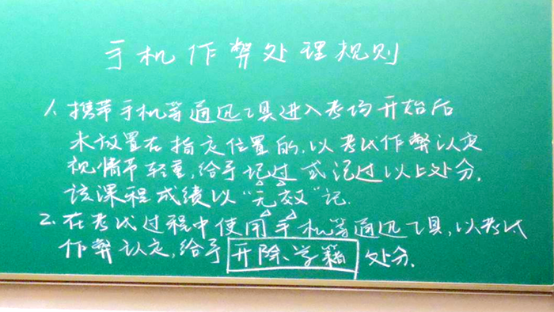 手机作弊处理规则
1、携带手机等通迅工具进入考场开始后
未放置在指定位置的,以考试作弊认定
视情节轻重,给予记过或记过以上处分,
该课程成绩以"无效"记.
2、在考试过程中使用手机等通迅工具,以考试
作弊认定,给予开除学籍处分.